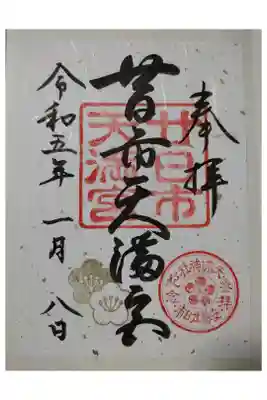 奉拝
廿日市天満宮
廿日市
天満宮
令和五年 一月 八日